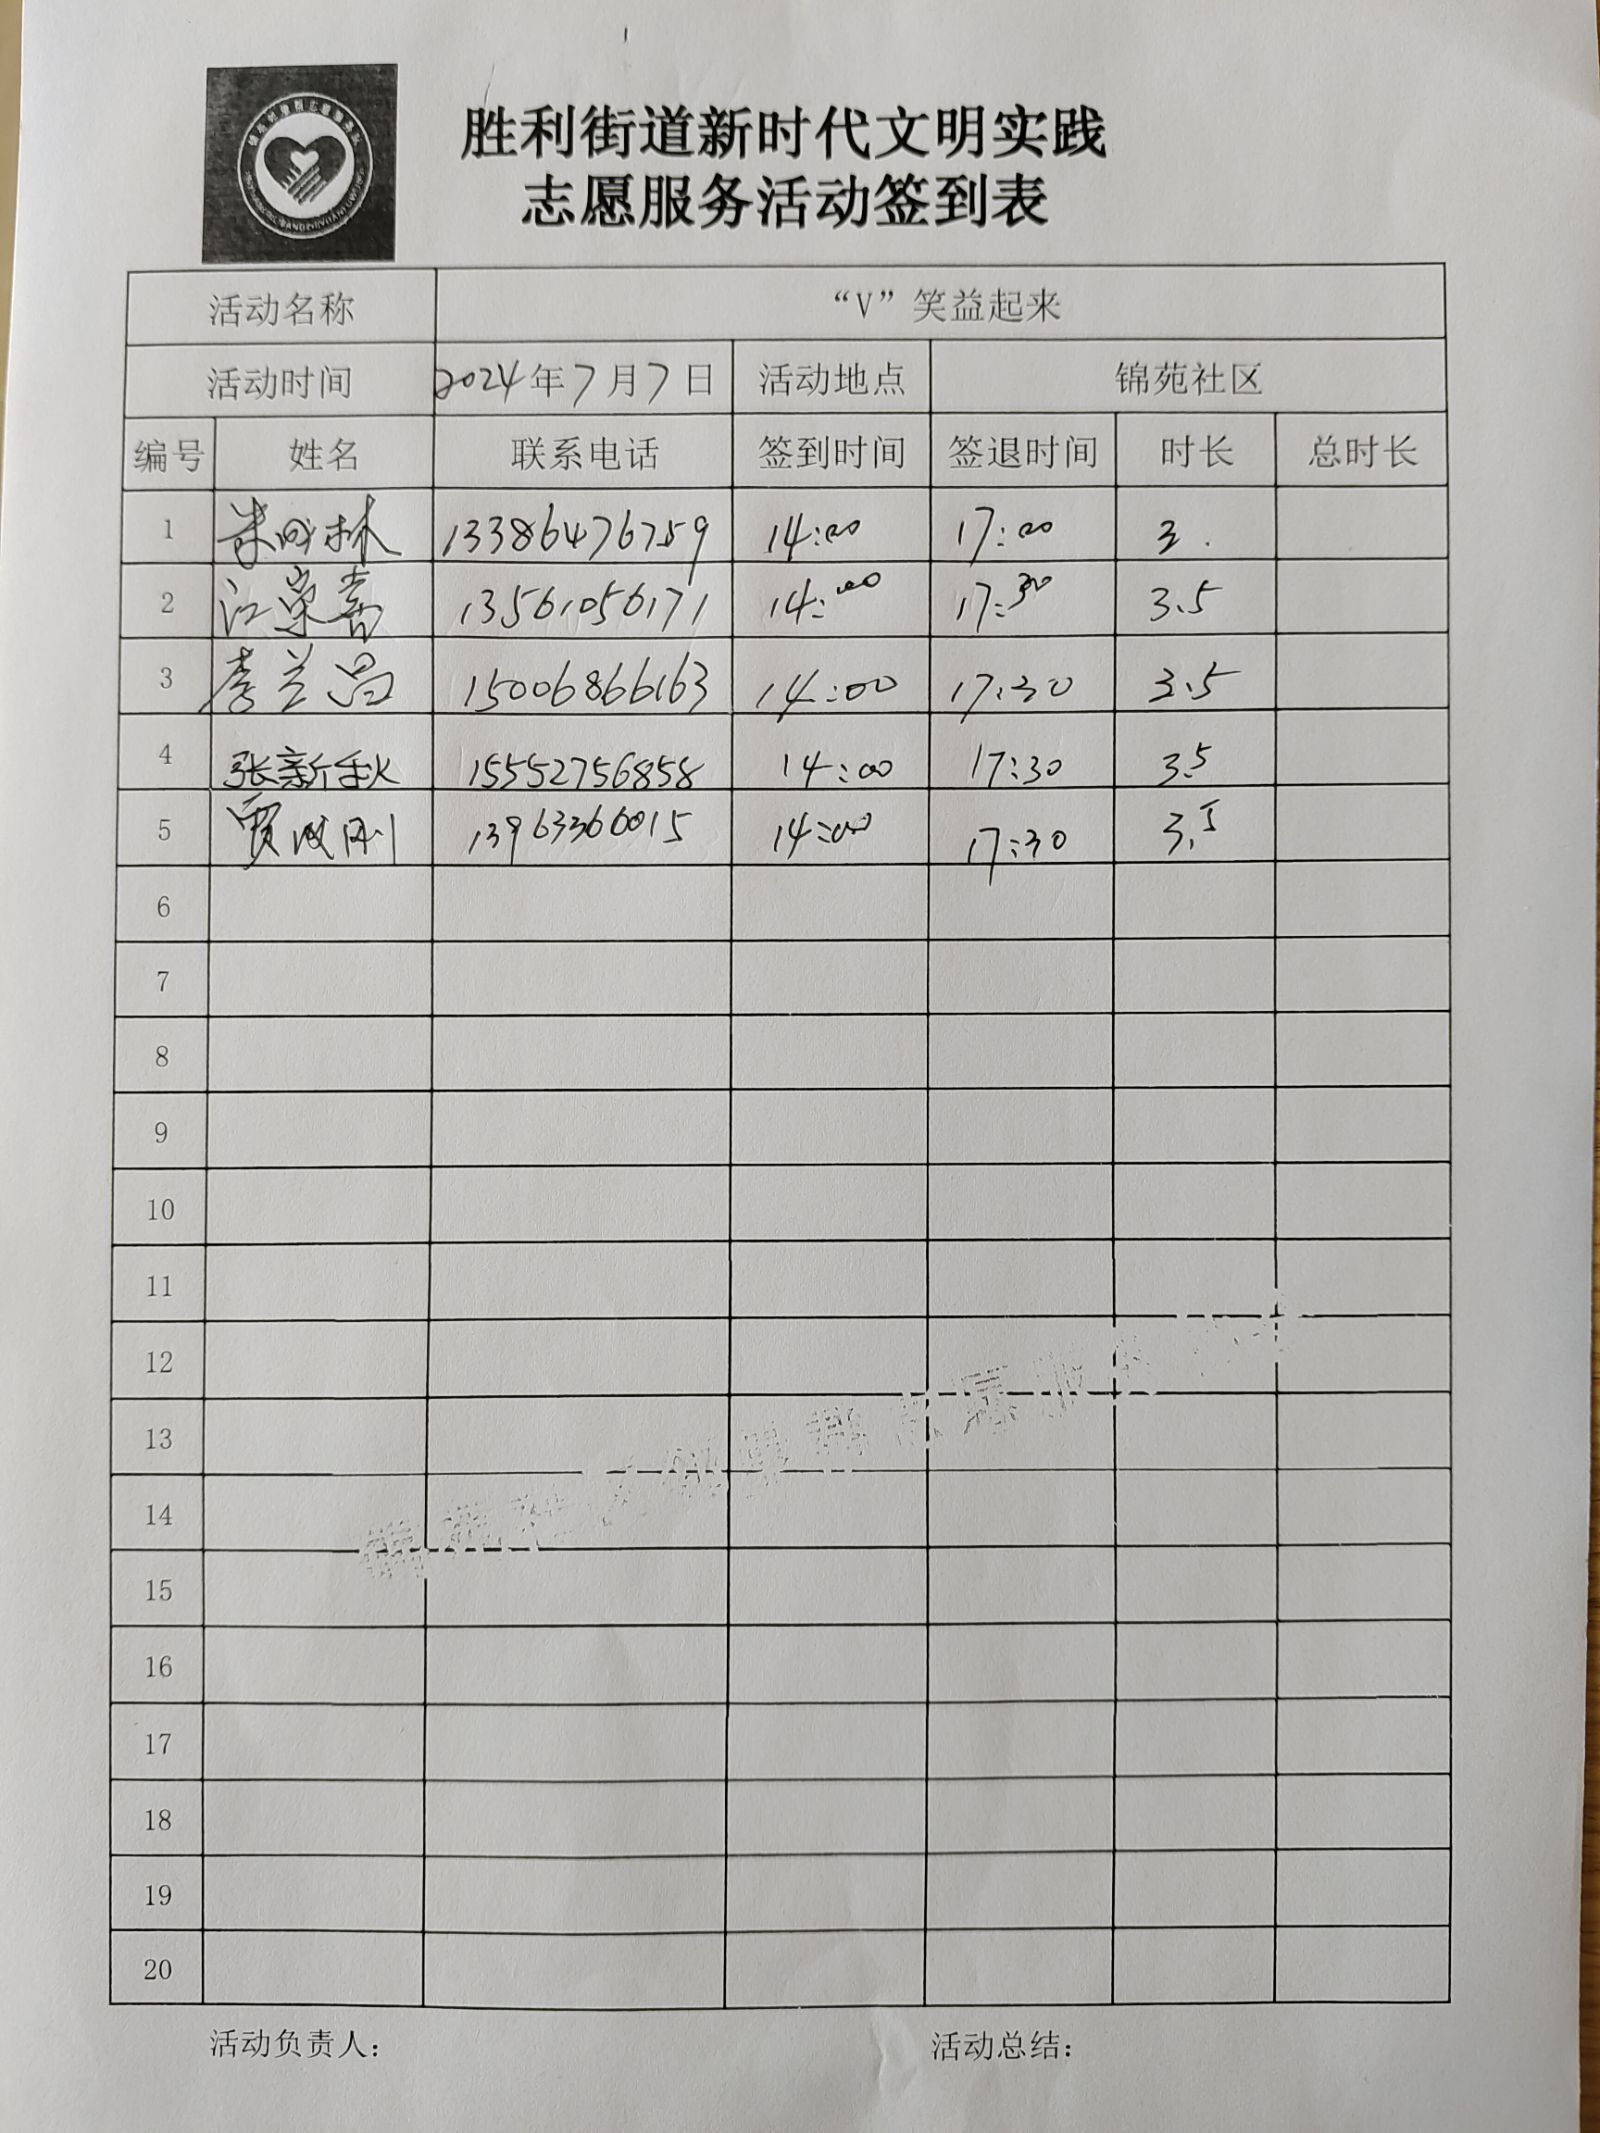 胜利街道新时代文明实践
志愿服务活动签到表
活动名称 “V”笑益起来
活动时间 2024年7月7日 活动地点 锦苑社区
编号 姓名 联系电话 签到时间 签退时间 时长 总时长
1 林 13386476759 14:00 17:00 3.
2 江荣喜 13561056171 14:00 17:30 3.5
3 李兰昌 15006866163 14:00 17:30 3.5
4 张新秋 15552756858 14:00 17:30 3.5
5 贾 刚 13963366015 14:00 17:30 3.5
6
7
8
9
10
11
12
13
14
15
16
17
18
19
20
活动负责人： 活动总结：